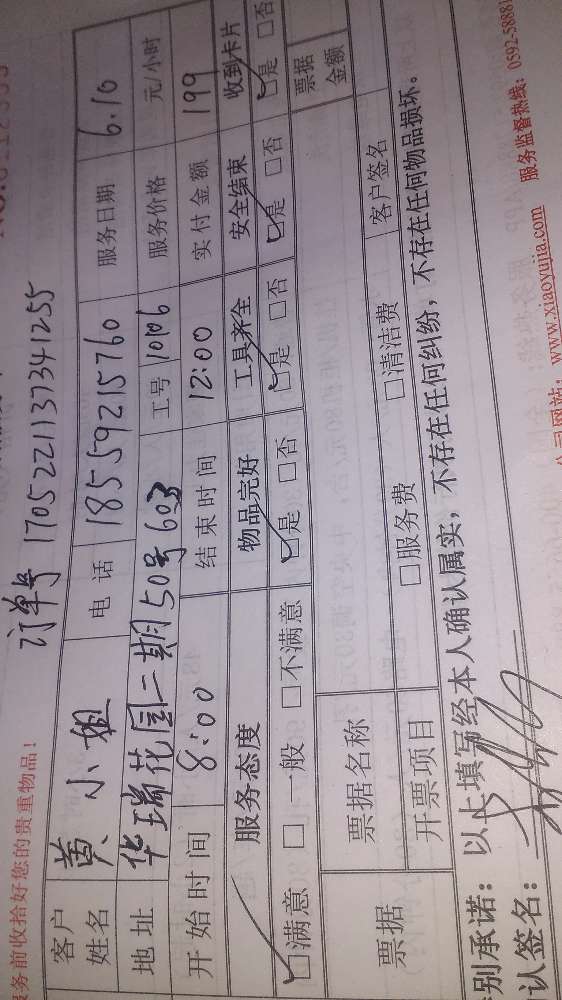 务前收拾好您的贵重物品！
订单号 1705221137341255
客户姓名 黄小姐 电话 18559215760 服务日期 6.10
地址 华瑞花园二期50号603 工号 10106 服务价格 元/小时
开始时间 8:00 结束时间 12:00 实付金额 199
服务态度 物品完好 工具齐全 安全结束 收到卡片
☑满意 □一般 □不满意 ☑是 □否 ☑是 □否 ☑是 □否 ☑是 □否
票据 票据名称 票据金额
开票项目 □服务费 □清洁费 客户签名
别承诺：以上填写经本人确认属实，不存在任何纠纷，不存在任何物品损坏。
认签名：
公司网站：www.xiaoyujia.com 服务监督热线：0592-5888